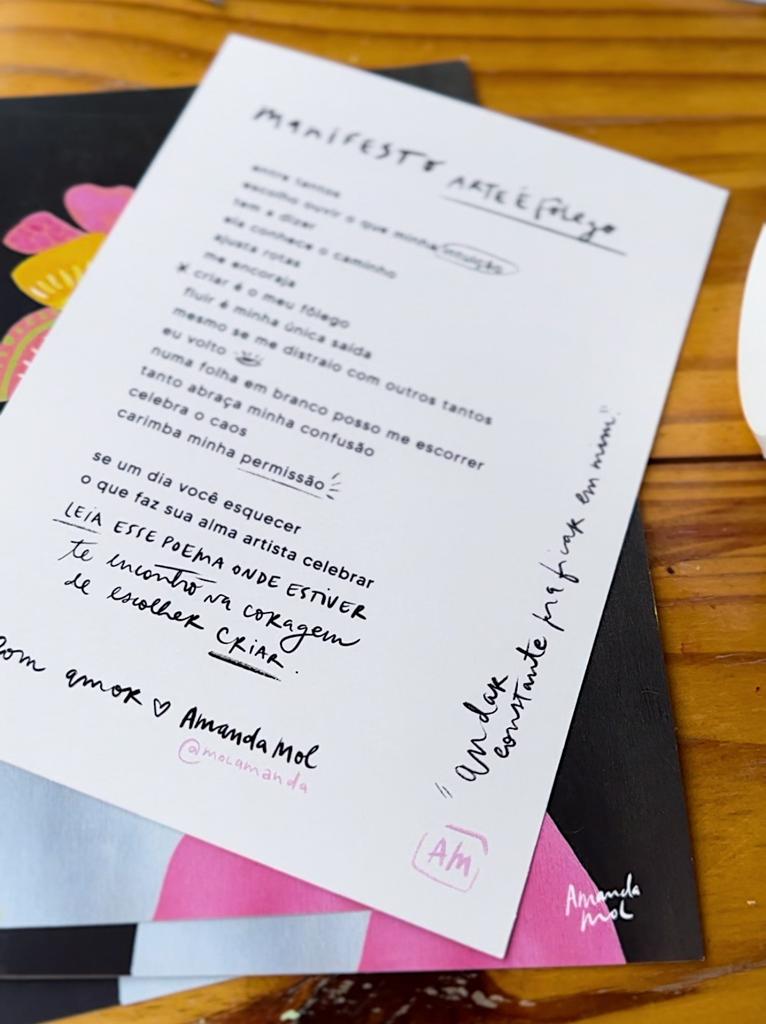 manifesto ARTE É fôlego
entre tantos
escolho ouvir o que minha intuição
tem a dizer
ela conhece o caminho
ajusta rotas
me encoraja
* criar é o meu fôlego
fluir é minha única saída
mesmo se me distraio com outros tantos
eu volto
numa folha em branco posso me escorrer
tanto abraça minha confusão
celebra o caos
carimba minha permissão
se um dia você esquecer
o que faz sua alma artista celebrar
LEIA ESSE POEMA ONDE ESTIVER
te encontro na coragem
de escolher CRIAR.
com amor ♡ Amanda Mol
@molamanda
"andar
constante praficar em mim."
AM
Amanda
Mol